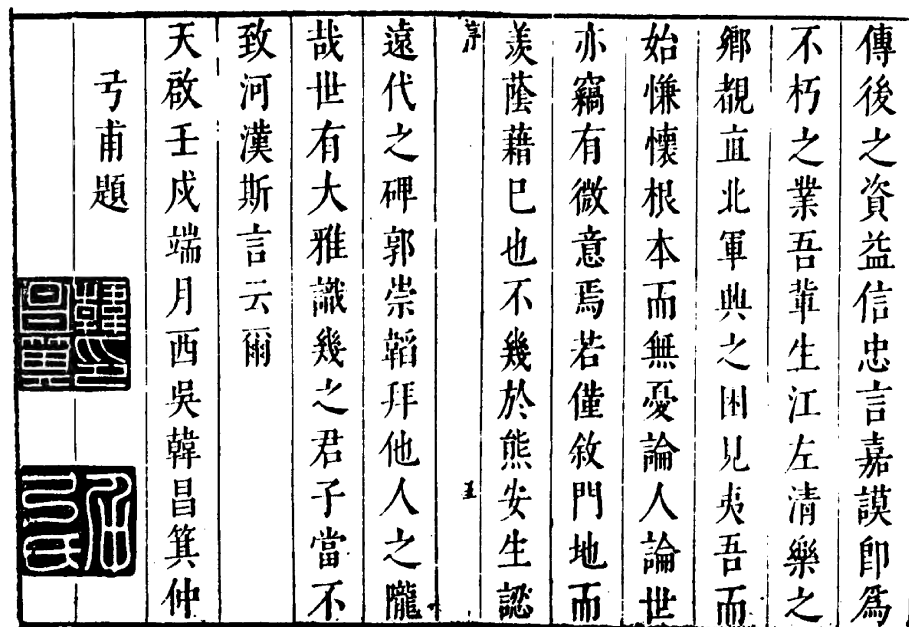 傳後之資益信忠言嘉謨即為
不朽之業吾輩生江左清樂之
鄉覩直北軍興之困見夷吾而
始慊懷根本而無憂論人論世
亦竊有微意焉若僅敘門地而
羨蔭藉已也不幾於熊安生認
序 五
遠代之碑郭崇韜拜他人之隴
哉世有大雅識幾之君子當不
致河漢斯言云爾
天啟壬戌端月西吳韓昌箕仲
弓甫題
韓昌箕印
仲弓氏